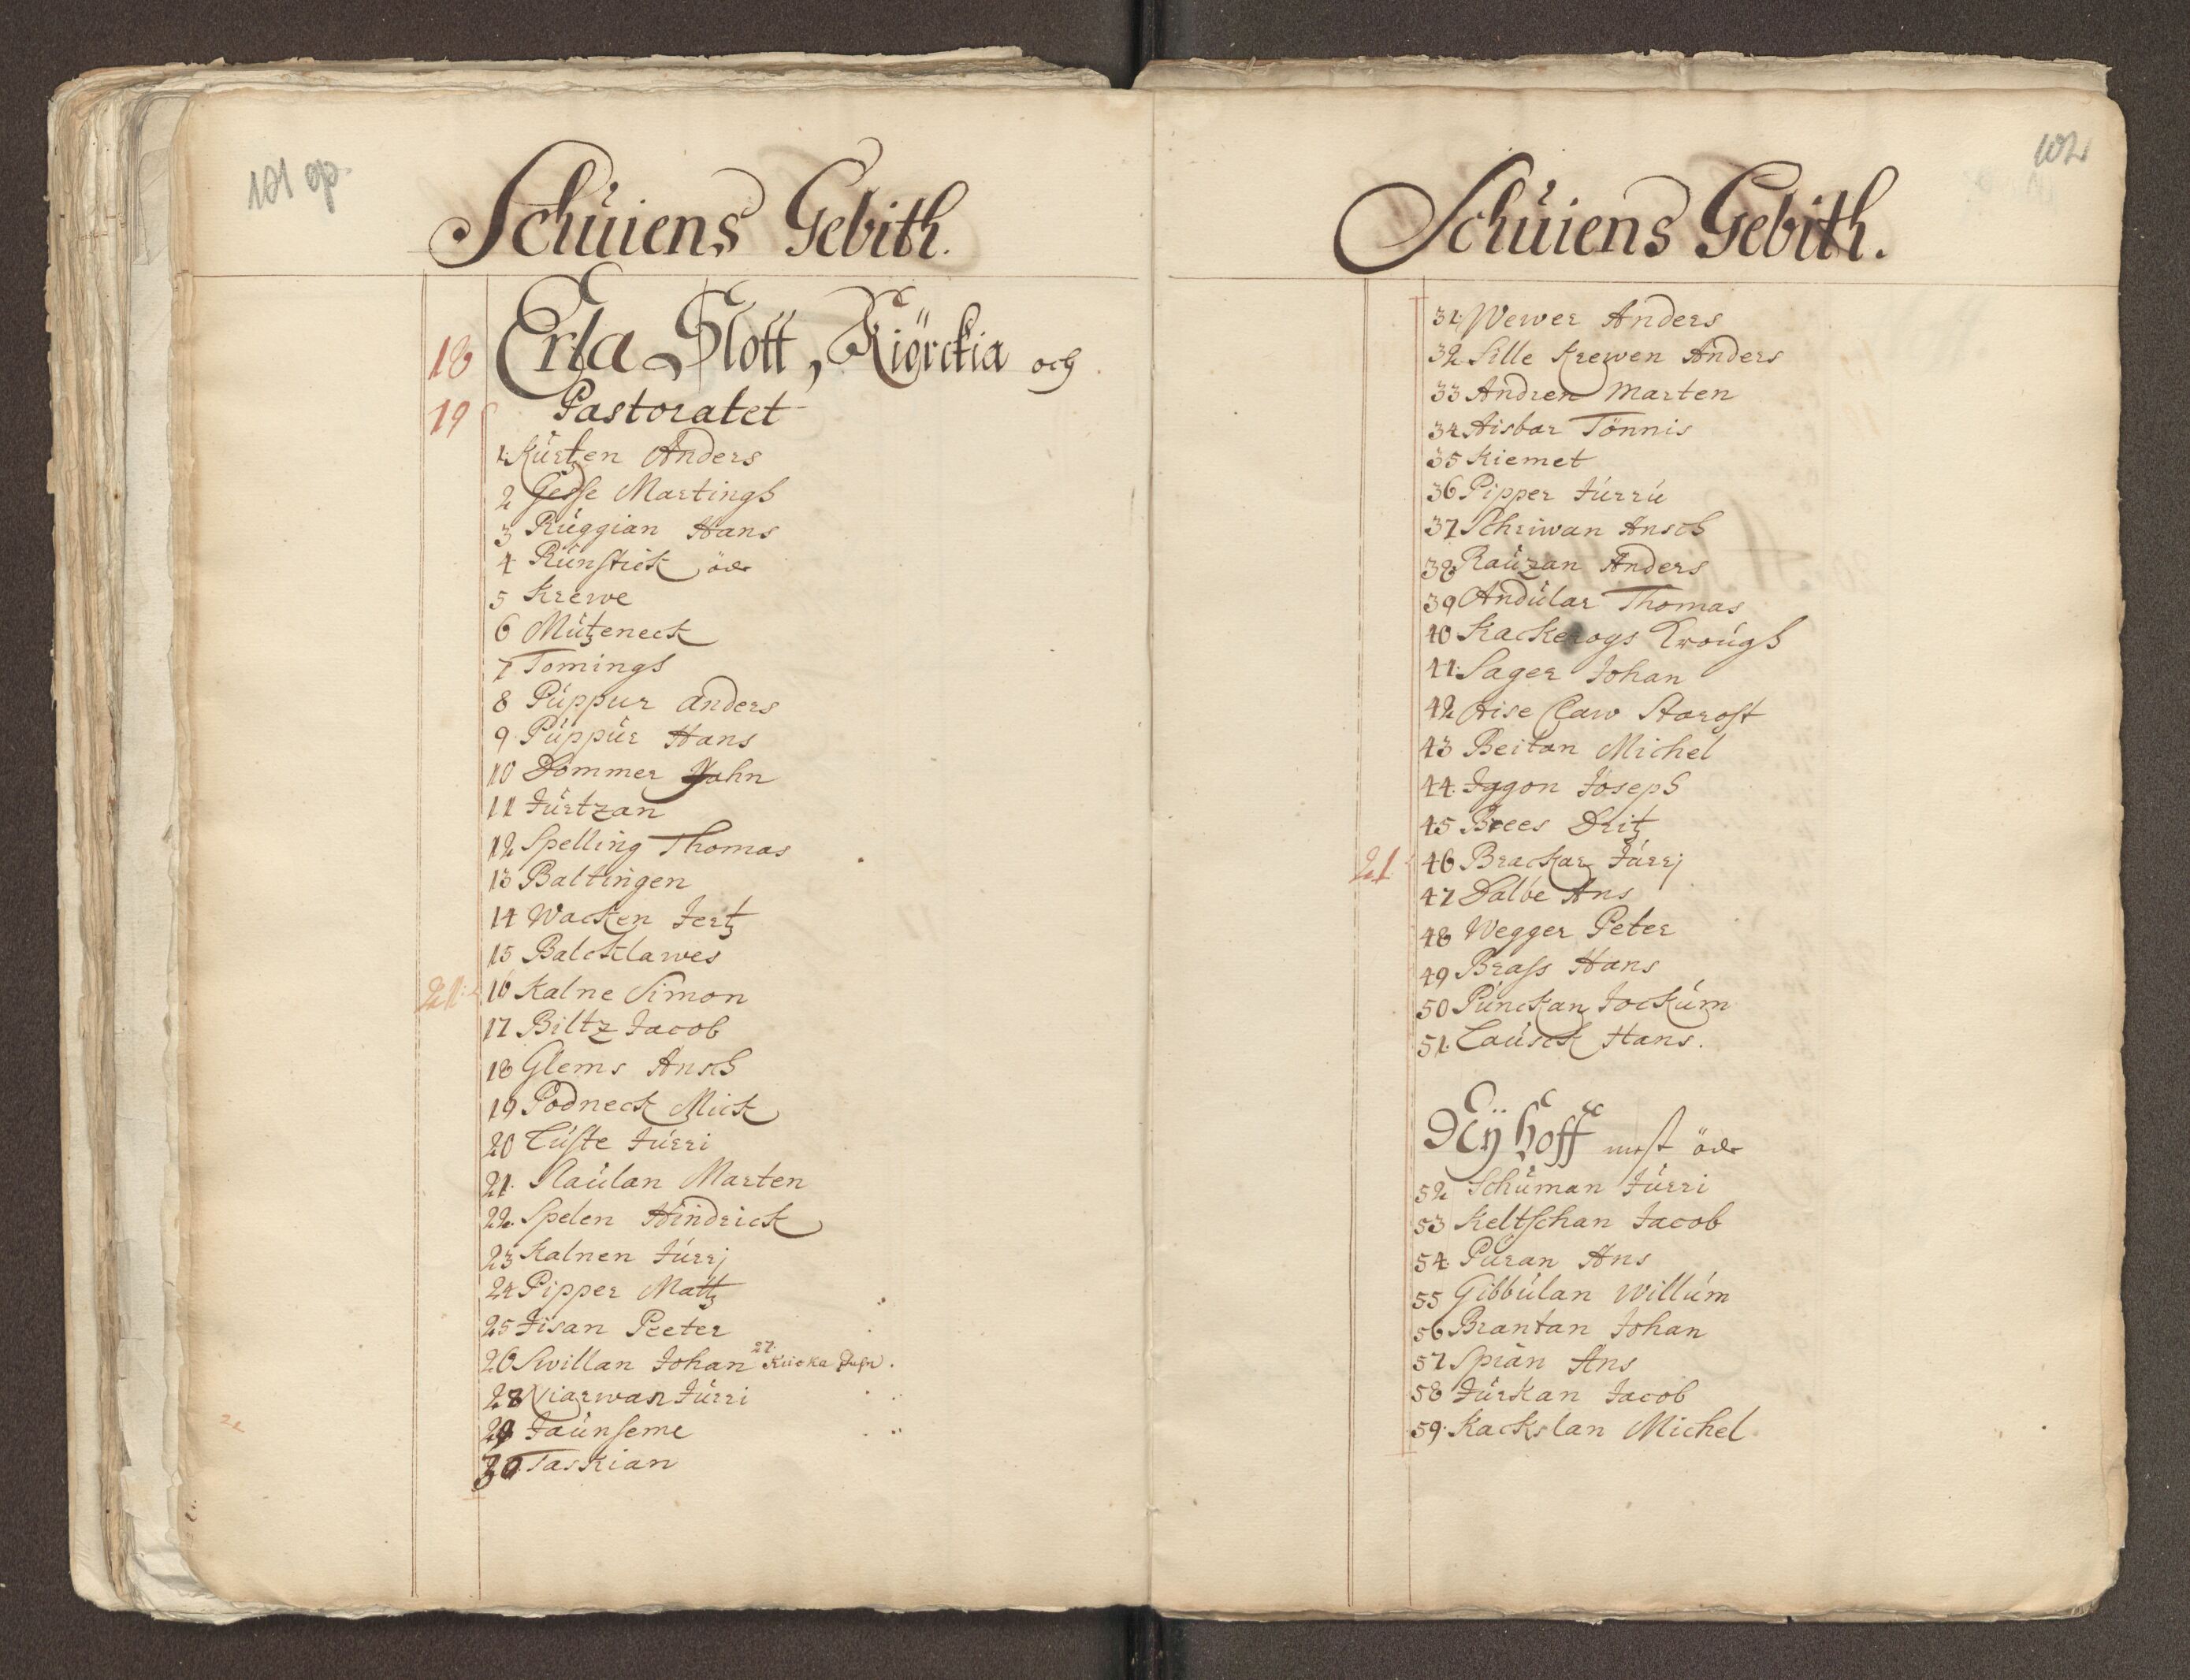 101 op.
Schüiens Gebith.
18 Erla Slott, Kiörckia och
19 Pastoratet
1. Kürtzen Anders
2 Gesse Martingh
3 Rüggian Hans
4 Rünstick öde
5 Krewe
6 Mützeneck
7 Tomings
8 Püppur Anders
9 Püppür Hans
10 Dömmer Jahn
11 Jürtzan
12 Spelling Thomas
13 Baltingen
14 Wacken Jertz
15 Balcklawes
21. 16 Kalne Simon
17 Biltz Jacob
18 Glems Ansch
19 Podneck Mick
20 Lüste Jürri
21. Slaülan Marten
22. Spelen Hindrick
23 Kalnen Jürrj
24 Pipper Mattz
25 Jisan Peeter
26 Swillan Johan 27. Kiicka
28 Wiarwan Jürri
29 Jaünseme
30. Taskian
102
Schüiens Gebith.
31. Wewer Anders
32. Sille Krewen Anders
33 Andren Marten
34 Aisbar Tönnis
35 Kiemet
36 Pipper Jürrü
37 Schriwan Ansch
38 Raüzan Anders
39 Andülar Thomas
40 Kackerogs Krough
41. Sager Johan
42 Aise Claw Starost
43 Beitan Michel
44. Iggon Joseph
45 Brees Dritz
21 46 Brackar Jürrj
47 Dalbe Ans
48 Wegger Peter
49 Brass Hans
50 Pünckan Jockúm
51. Laüsck Hans.
Nÿhoff mest öde
52 Schüman Jürri
53 Keltschan Jacob
54. Püran Ans
55 Gibbúlan Willúm
56 Brantan Johan
57 Sprän Ans
58 Jürkan Jacob
59. Kackslan Michel